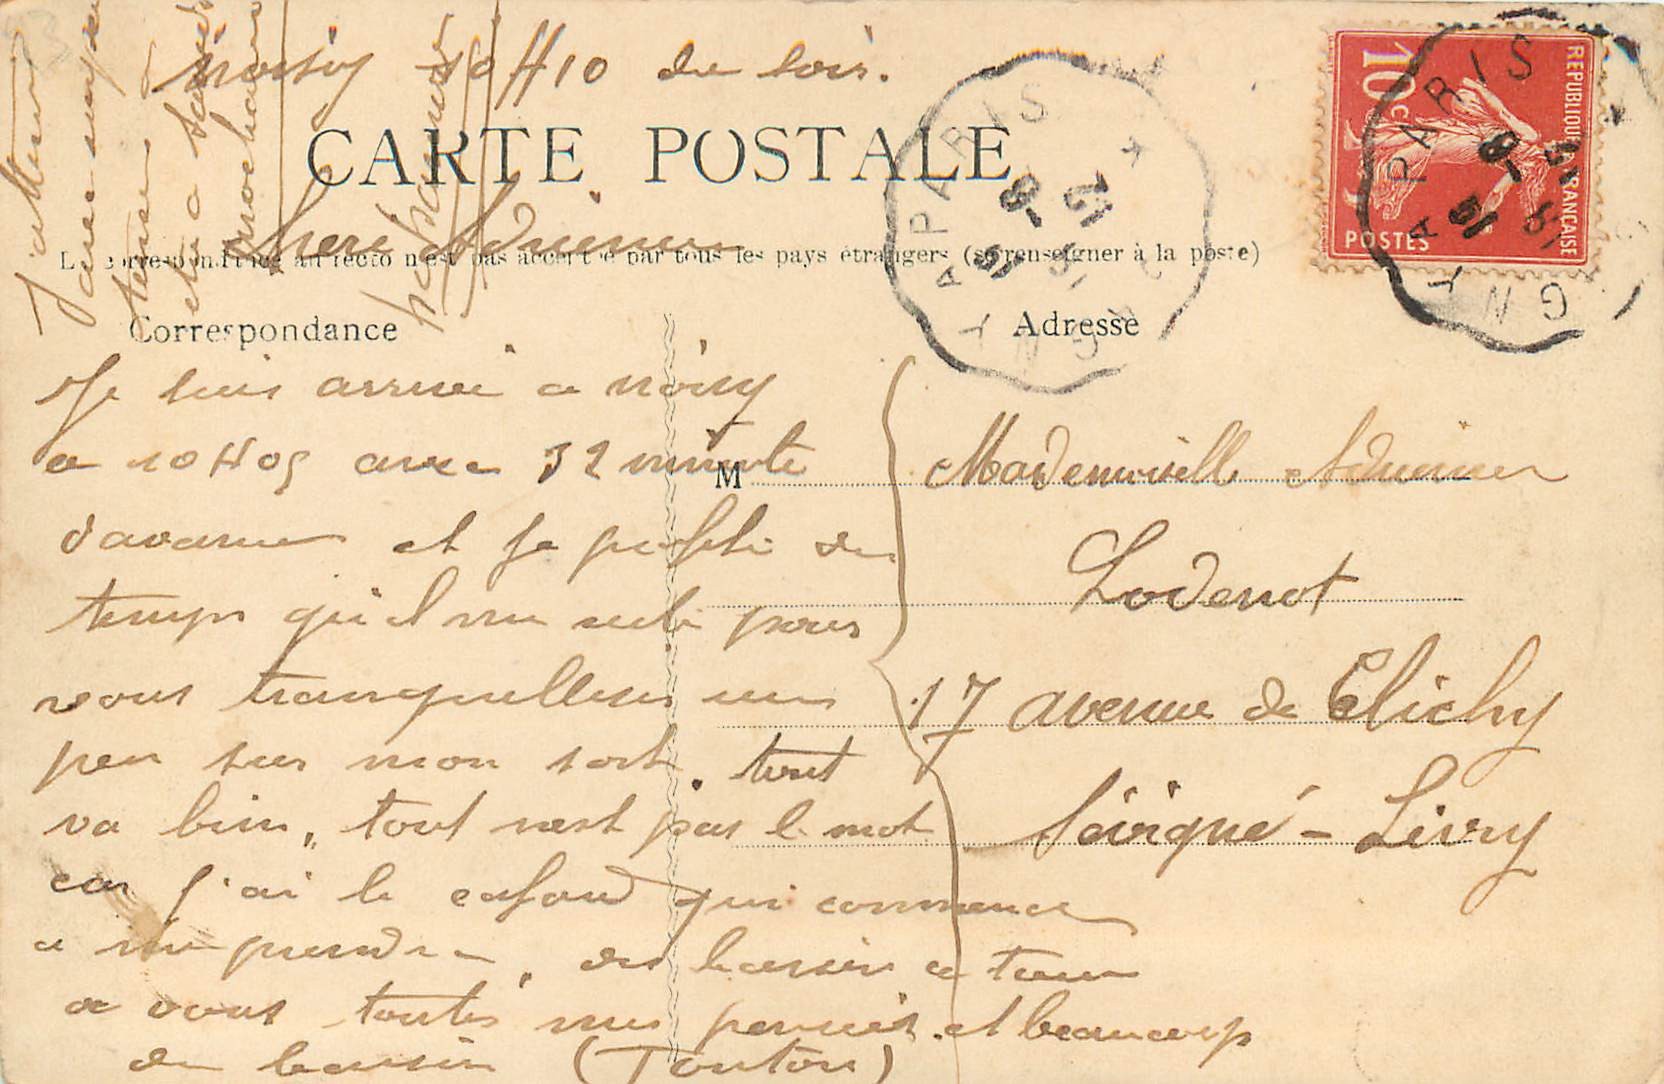 Noisy 10H10 du soir.
CARTE POSTALE
Chere Adrienne
La correspondance au recto n'est pas acceptée par tous les pays étrangers (se renseigner à la poste)
Correspondance
Adresse
Je suis arrivé a noisy
a 10H05 avec 32 minute
d'avance et je profite du
temps qu'il me reste pour
vous tranquelliser un
peu sur mon sort. tout
va bien, tout n'est pas le mot
car j'ai le cafard qui commence
a me prendre, des baisers a tous
a vous toutes mes pensées. et beaucoup
de baisers (Tonton)
J'attend
prochaine
M
Mademoiselle Adrienne
Lodenot
17 avenue de Clichy
Sévigné - Livry
REPUBLIQUE FRANCAISE
10 c
POSTES
PARIS
LAGNY
8-12
15
PARIS
LAGNY
8
15